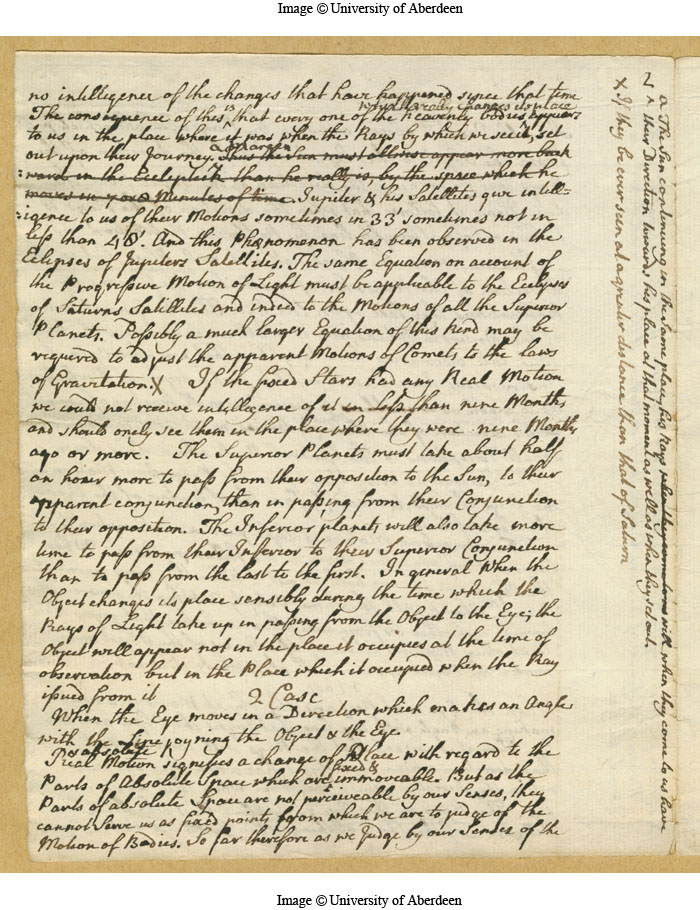 Image © University of Aberdeen
no intelligence of the changes that have happened since that time
The consequence of this is that every one of the heavenly bodies appears
wch really changes its place
to us in the place where it was when the Rays by which we see it, set
out upon their Journey. Thus the Sun must allways appear more back
: wards in the Ecliptick than he really is, by the space which he
moves in 7 or 8 Minutes of time. Jupiter & his Satellites give intell-
: igence to us of their Motions sometimes in 33' sometimes not in
less than 48'. And this Phænomenon has been observed in the
Eclipses of Jupiters Satellites. The same Equation on account of
the Progressive Motion of Light must be applicable to the Eclipses
of Saturns Satellites and indeed to the Motions of all the Superior
Planets. Possibly a much larger Equation of this kind may be
required to adjust the apparent Motions of Comets to the laws
of Gravitation.X If the fixed Stars had any Real Motion
we could not receive intelligence of it in less than nine Months,
and should onely see them in the place where they were nine Months
ago or more. The Superior Planets must take about half
an hour more to pass from their opposition to the Sun, to their
apparent conjunction, than in passing from their Conjunction
to their opposition. The Inferior planets will also take more
time to pass from their Inferior to their Superior Conjunction
than to pass from the last to the first. In general when the
Object changes its place sensibly during the time which the
Rays of Light take up in passing from the Object to the Eye; the
Object will appear not in the place it occupies at the time of
observation but in the Place which it occupied when the Ray
issued from it
2 Case
When the Eye moves in a Direction which makes an Angle
with the Line joyning the Object & the Eye
or absolute
Real Motion signifies a change of Place with regard to the
fixed &
Parts of Absolute Space which are immoveable. But as the
Parts of absolute Space are not perceiveable by our Senses, they
cannot serve us as fixed points from which we are to judge of the
Motion of Bodies. So far therefore as we Judge by our Senses of the
a The Sun continuing in the same place, his Rays will when they come to us have
their Direction towards his place at that moment as well as when they set out.
X If they be ever seen at a greater distance than that of Saturn
Image © University of Aberdeen